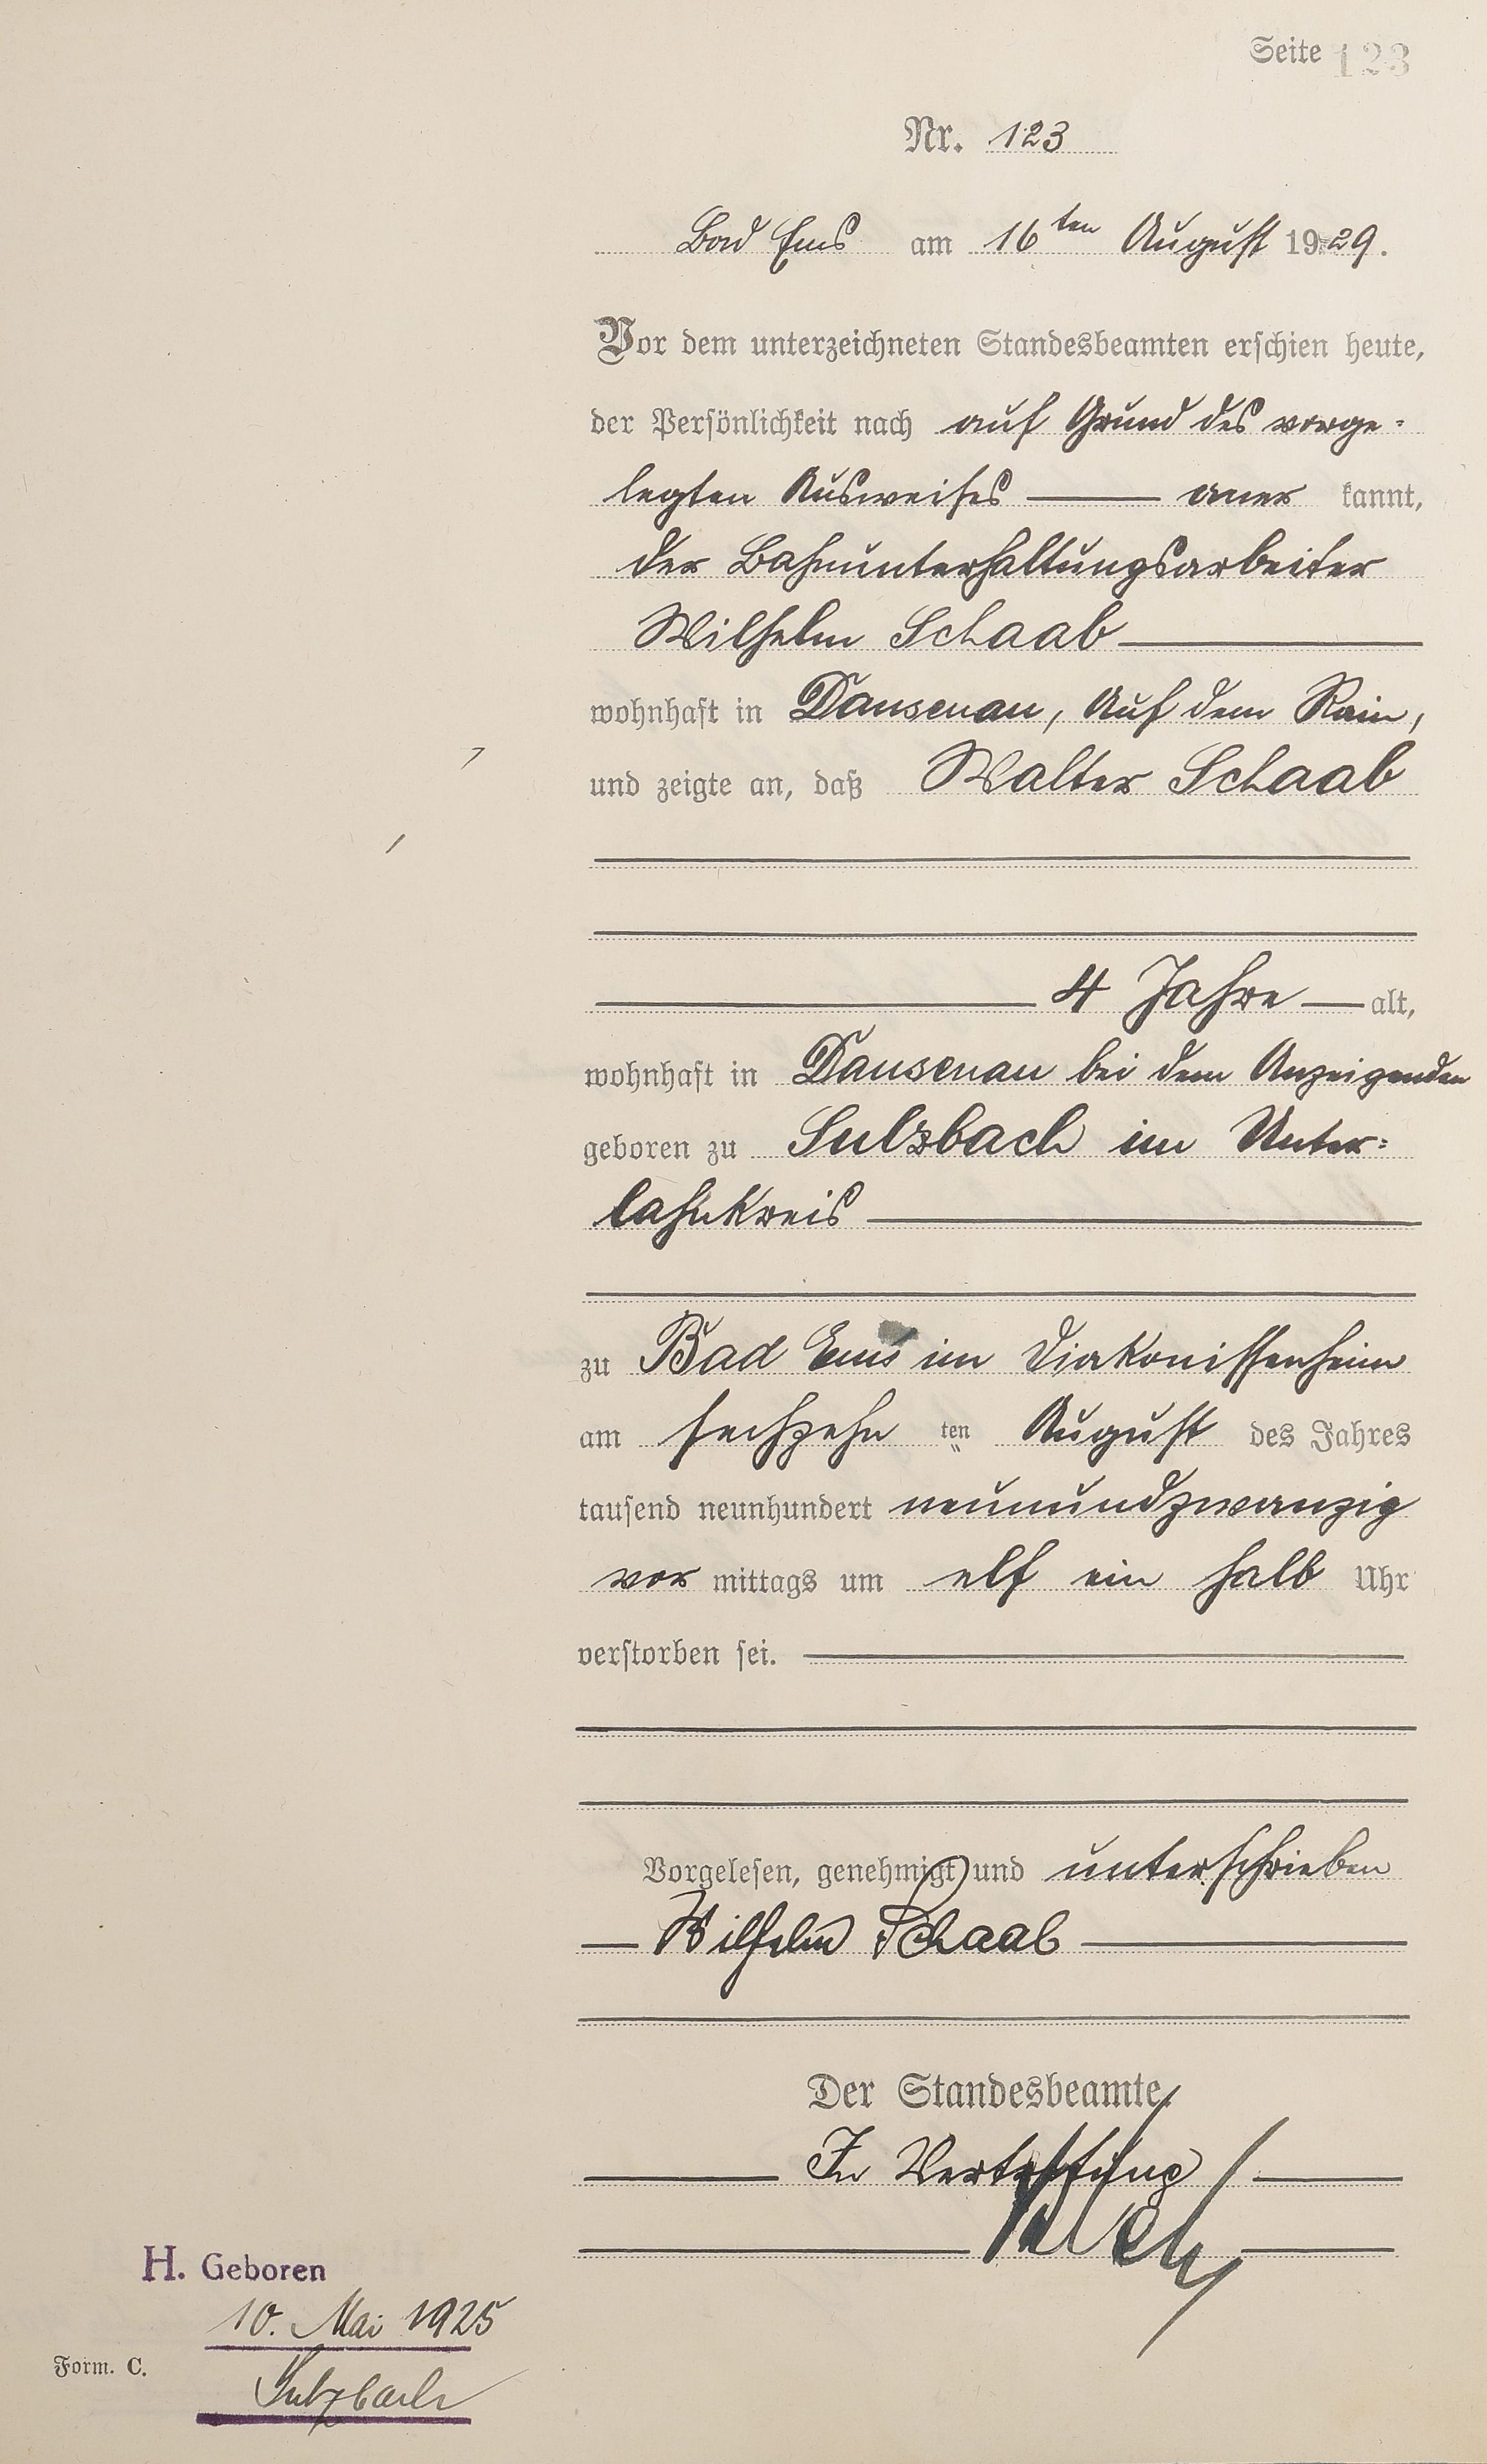 Seite 123
Nr. 123
Bad Ems am 16ten August 1929.
Vor dem unterzeichneten Standesbeamten erschien heute,
der Persönlichkeit nach auf Grund des vorge-
legten Ausweises — aner kannt,
der Bahnunterhaltungsarbeiter
Wilhelm Schaab
wohnhaft in Dausenau, Auf dem Rain,
und zeigte an, daß Walter Schaab
4 Jahre — alt,
wohnhaft in Dausenau bei dem Anzeigenden
geboren zu Sulzbach im Unter-
lahnkreis
zu Bad Ems im Diakonissenheim
am sechzehn ten August des Jahres
tausend neunhundert neunundzwanzig
vor mittags um elf ein halb Uhr
verstorben sei.
Vorgelesen, genehmigt und unterschrieben
Wilhelm Schaab
Der Standesbeamte.
In Vertretung
H. Geboren
10. Mai 1925
Form. C.
Sulzbach